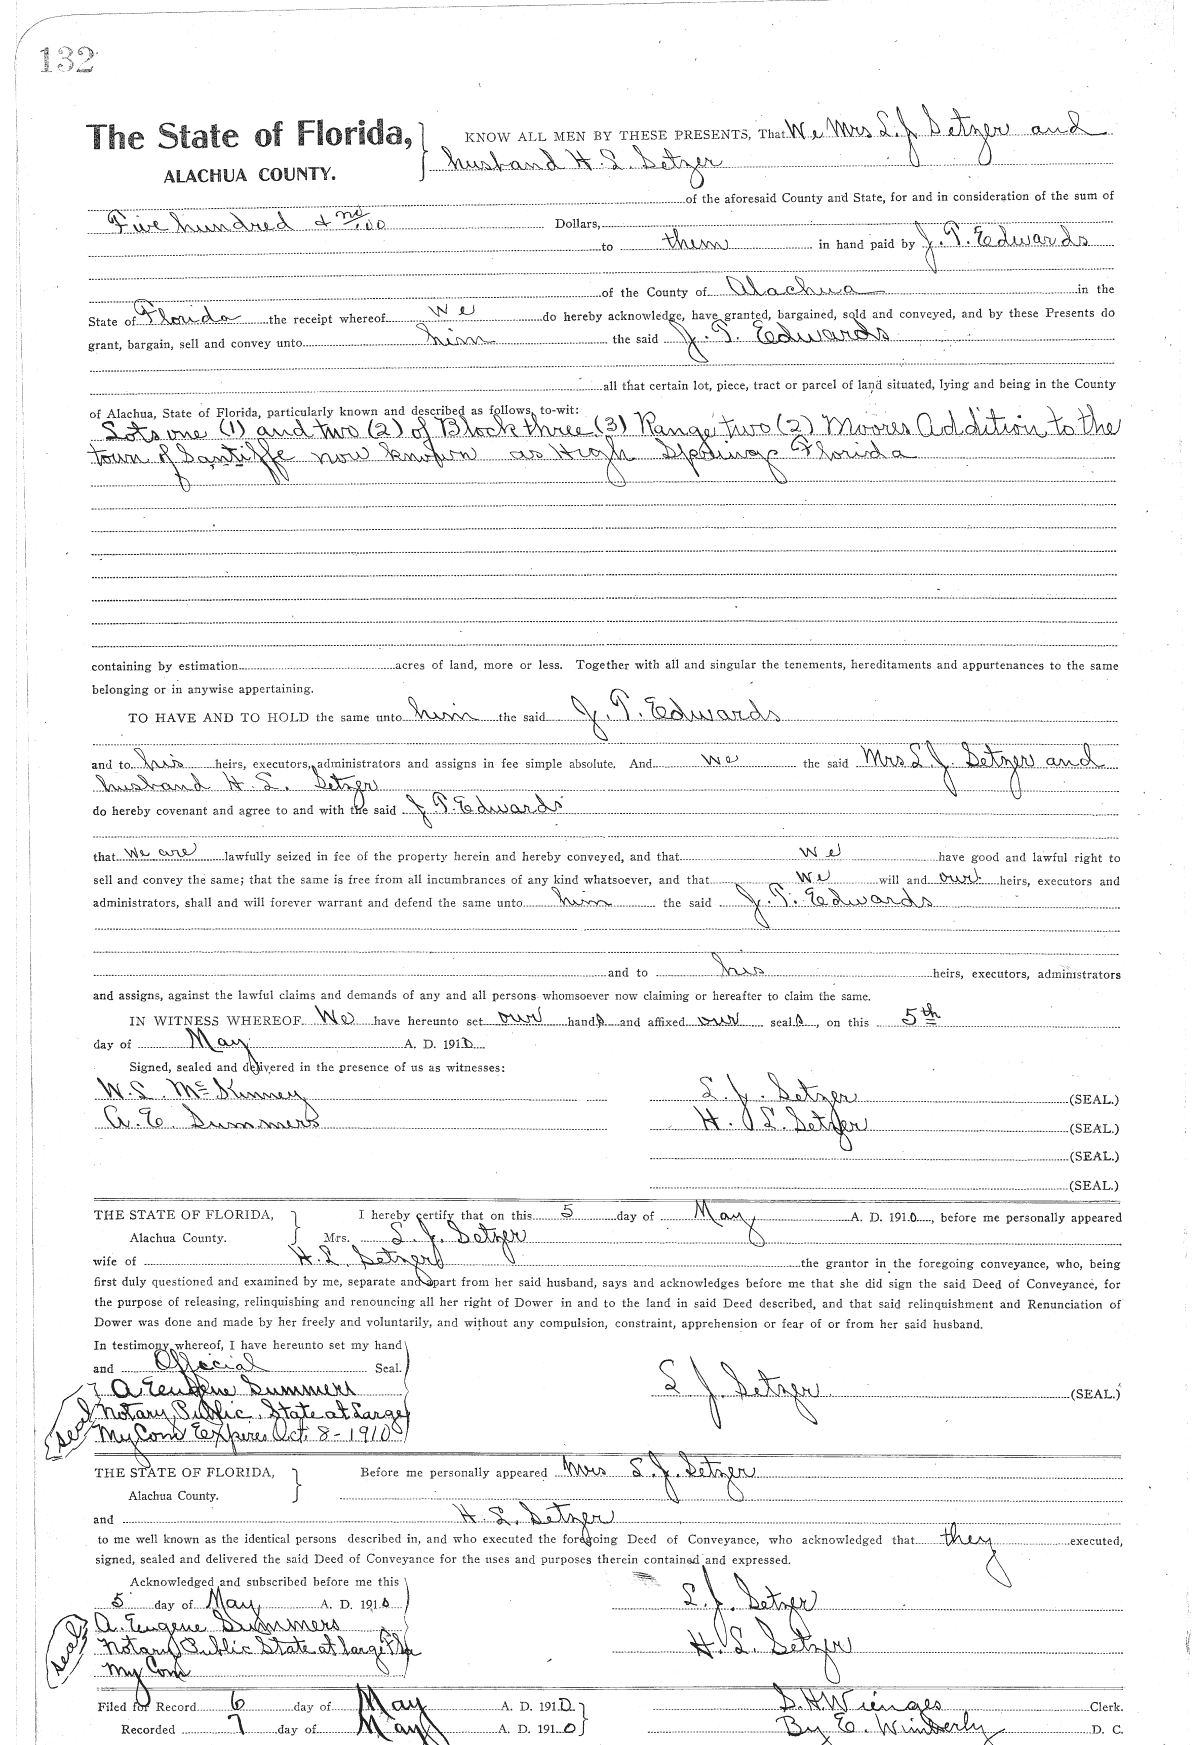 132
The State of Florida, } KNOW ALL MEN BY THESE PRESENTS, That We Mrs L. J. Setzer and
ALACHUA COUNTY. husband H. L. Setzer
of the aforesaid County and State, for and in consideration of the sum of
Five hundred & no/00 Dollars,
to them in hand paid by J. T. Edwards
of the County of Alachua in the
State of Florida the receipt whereof we do hereby acknowledge, have granted, bargained, sold and conveyed, and by these Presents do
grant, bargain, sell and convey unto him the said J. T. Edwards
all that certain lot, piece, tract or parcel of land situated, lying and being in the County
of Alachua, State of Florida, particularly known and described as follows, to-wit:
Lots one (1) and two (2) of Block three (3) Range two (2) Moores Addition to the
town of Santiffe now known as High Springs Florida
containing by estimation acres of land, more or less. Together with all and singular the tenements, hereditaments and appurtenances to the same
belonging or in anywise appertaining.
TO HAVE AND TO HOLD the same unto him the said J. T. Edwards
and to his heirs, executors, administrators and assigns in fee simple absolute. And we the said Mrs L. J. Setzer and
husband H. L. Setzer
do hereby covenant and agree to and with the said J. T. Edwards
that we are lawfully seized in fee of the property herein and hereby conveyed, and that we have good and lawful right to
sell and convey the same; that the same is free from all incumbrances of any kind whatsoever, and that we will and our heirs, executors and
administrators, shall and will forever warrant and defend the same unto him the said J. T. Edwards
and to his heirs, executors, administrators
and assigns, against the lawful claims and demands of any and all persons whomsoever now claiming or hereafter to claim the same.
IN WITNESS WHEREOF We have hereunto set our hands and affixed our seals, on this 5th
day of May A. D. 1910
Signed, sealed and delivered in the presence of us as witnesses:
W. L. McKinney L. J. Setzer (SEAL.)
A. E. Summers H. L. Setzer (SEAL.)
(SEAL.)
(SEAL.)
THE STATE OF FLORIDA, } I hereby certify that on this 5 day of May A. D. 1910, before me personally appeared
Alachua County. Mrs. L. J. Setzer
wife of H. L. Setzer the grantor in the foregoing conveyance, who, being
first duly questioned and examined by me, separate and apart from her said husband, says and acknowledges before me that she did sign the said Deed of Conveyance, for
the purpose of releasing, relinquishing and renouncing all her right of Dower in and to the land in said Deed described, and that said relinquishment and Renunciation of
Dower was done and made by her freely and voluntarily, and without any compulsion, constraint, apprehension or fear of or from her said husband.
In testimony whereof, I have hereunto set my hand
and Official Seal.
A Eugene Summers L J. Setzer (SEAL.)
seal Notary Public, State at Large
My Com Expires Oct. 8 - 1910
THE STATE OF FLORIDA, } Before me personally appeared Mrs L. J. Setzer
Alachua County.
and H. L. Setzer
to me well known as the identical persons described in, and who executed the foregoing Deed of Conveyance, who acknowledged that they executed,
signed, sealed and delivered the said Deed of Conveyance for the uses and purposes therein contained and expressed.
Acknowledged and subscribed before me this
5 day of May A. D. 1910 L. J. Setzer
A. Eugene Summers
seal Notary Public State at large Fla H. L. Setzer
My Com
Filed for Record 6 day of May A. D. 1910 } S. H. Wienges Clerk.
Recorded 7 day of May A. D. 1910 By E. Wimberly D. C.